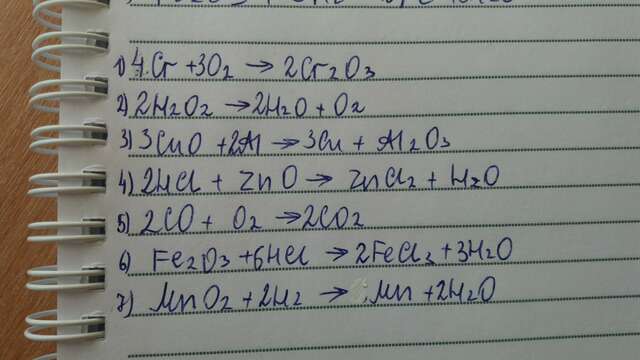 1) 4Cr + 3O₂ → 2Cr₂O₃
2) 2H₂O₂ → 2H₂O + O₂
3) 3CuO + 2Al → 3Cu + Al₂O₃
4) 2HCl + ZnO → ZnCl₂ + H₂O
5) 2CO + O₂ → 2CO₂
6) Fe₂O₃ + 6HCl → 2FeCl₂ + 3H₂O
7) MnO₂ + 2H₂ → Mn + 2H₂O